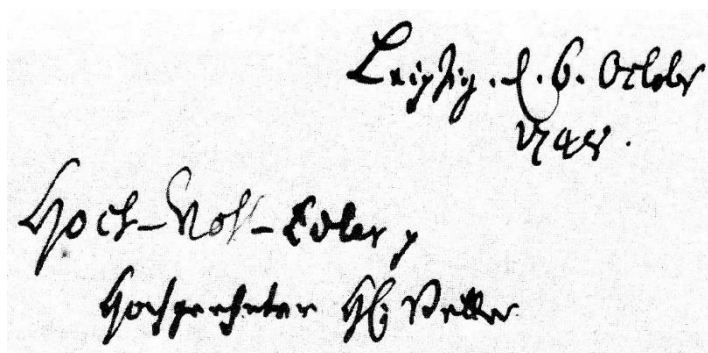 Leipzig. d. 6. Octobr
1748.
Hoch-Wohl-Edler
Hochgeehrter H. Vetter